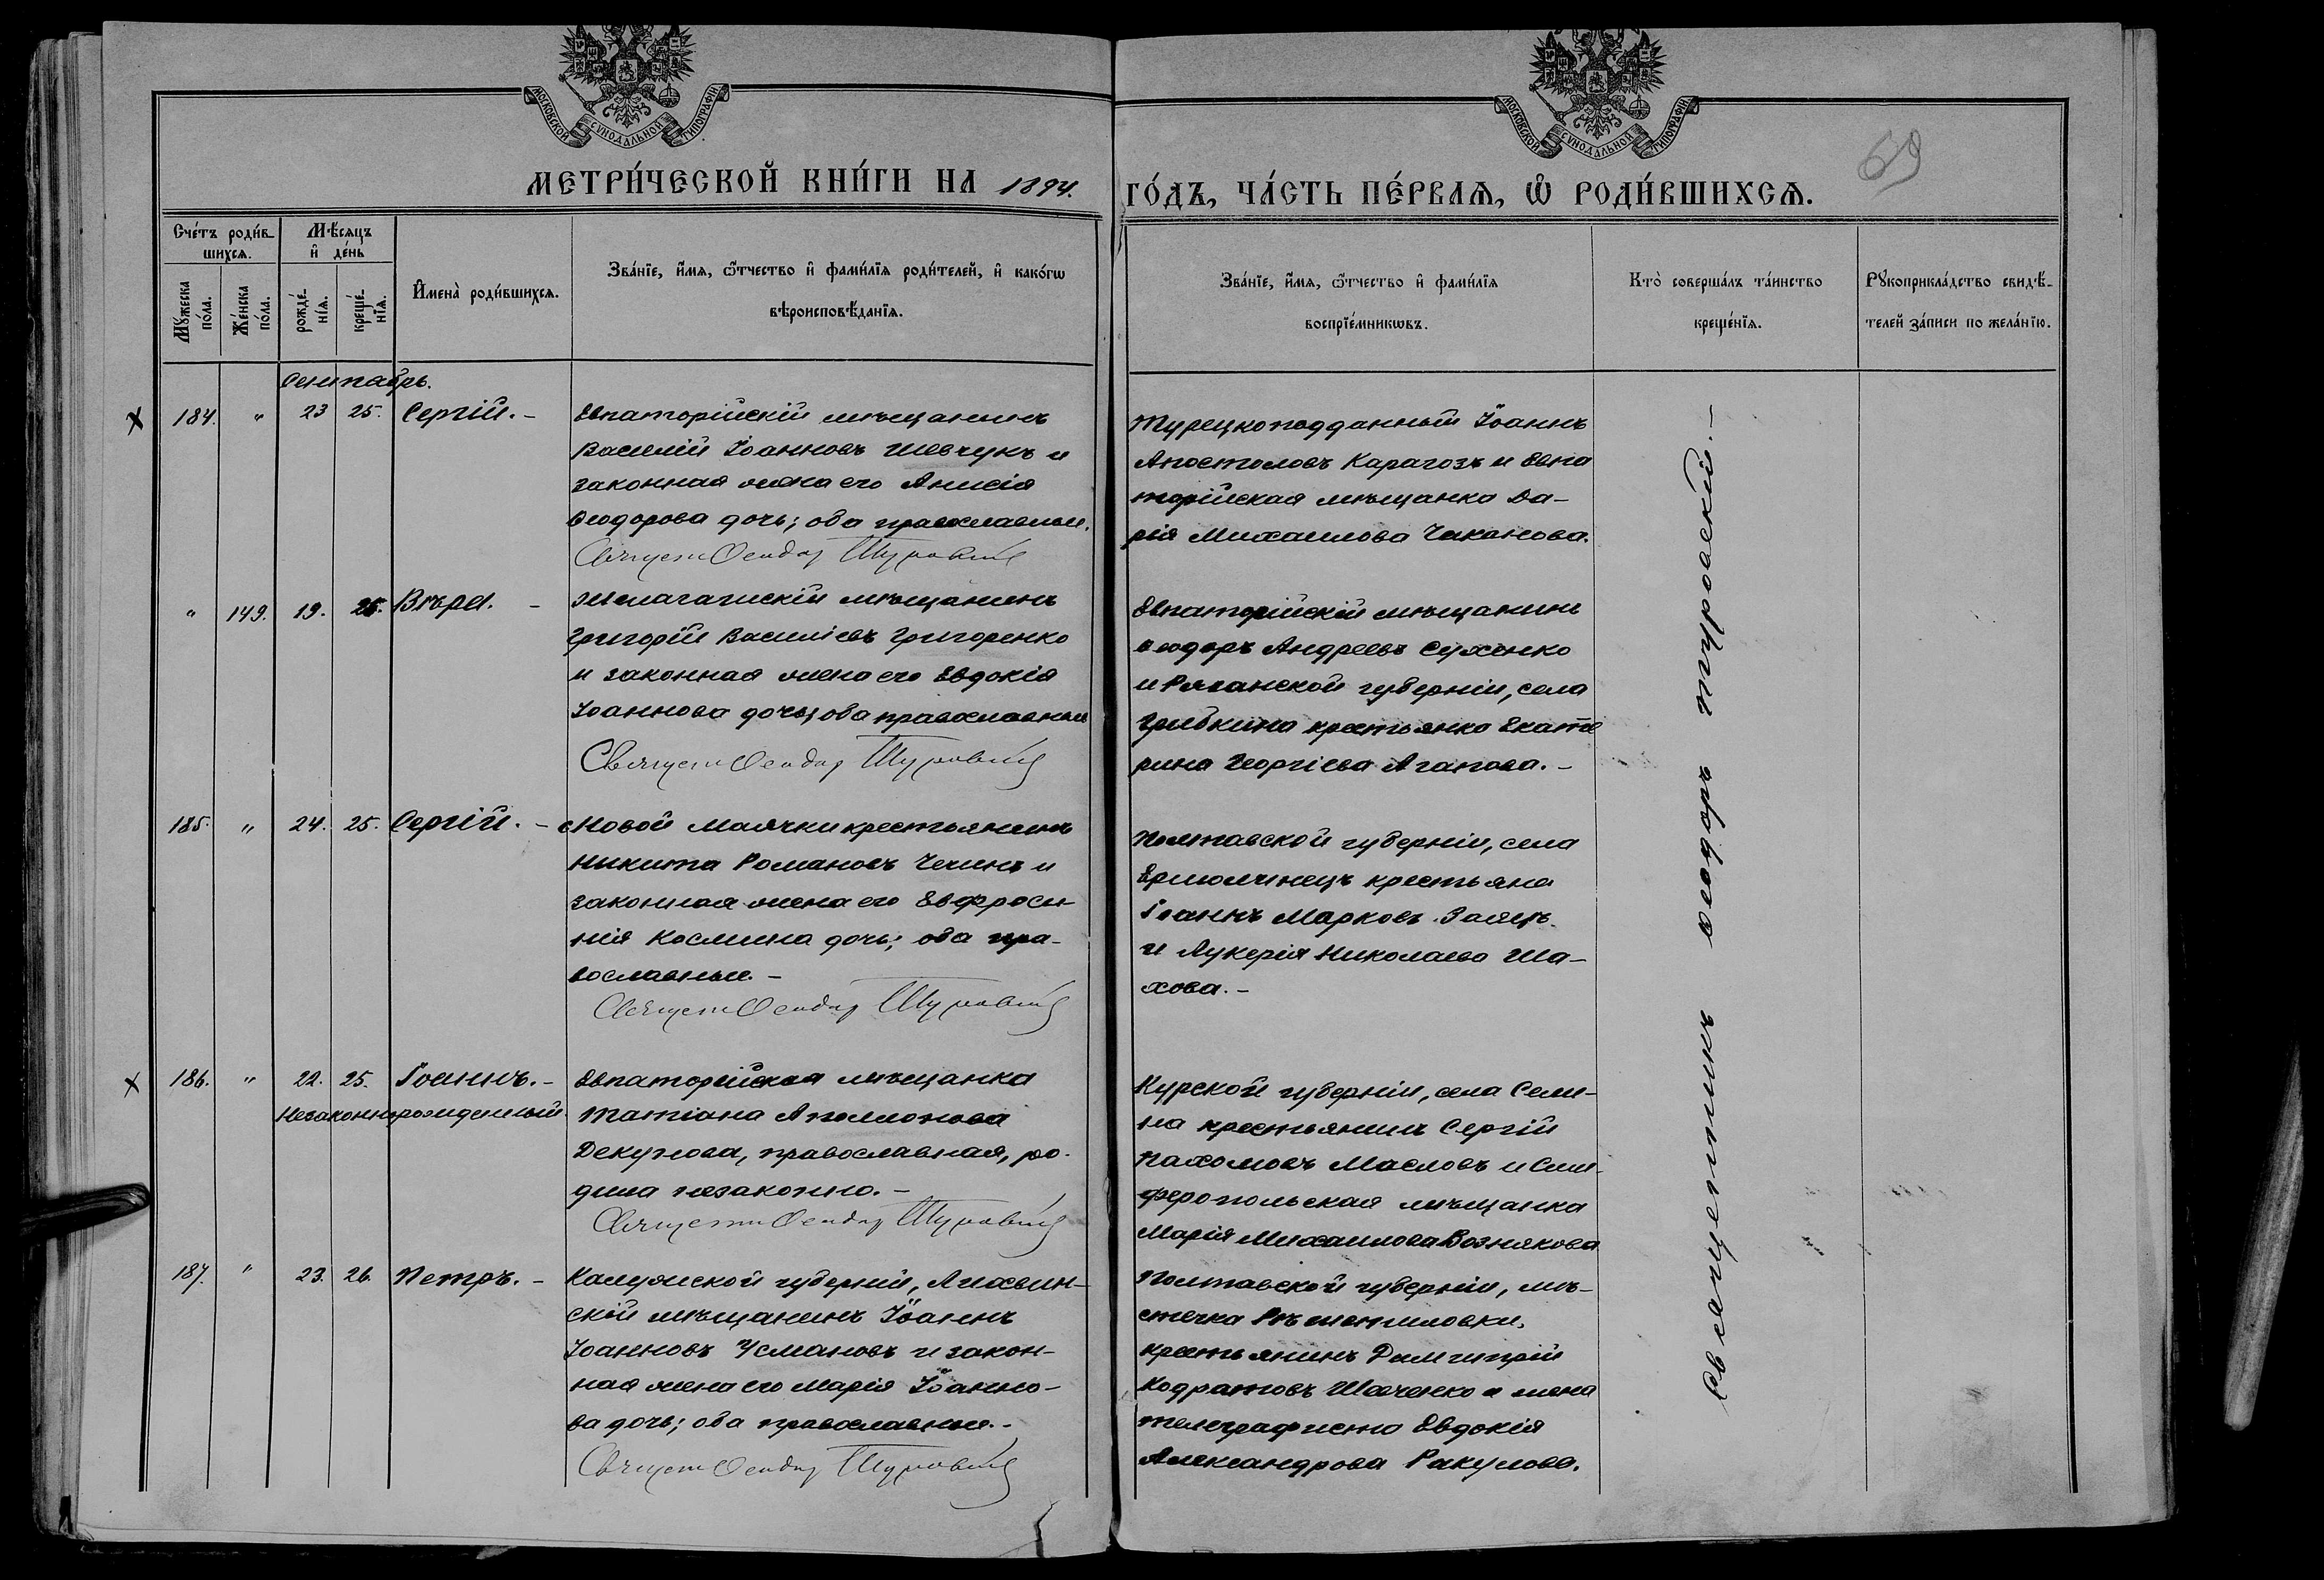 МОСКОВСКОЙ СѴНОДАЛЬНОЙ ТИПОГРАФІИ
МОСКОВСКОЙ СѴНОДАЛЬНОЙ ТИПОГРАФІИ
69
МЕТРИ́ЧЕСКОЙ КНИ́ГИ НА 1894.
ГО́ДЪ, ЧА́СТЬ ПЕ́РВАѦ, Ѽ РОДИ́ВШИХСѦ.
Сче́тъ роди́в-
шихсѧ.
Мѣ́сяцъ
и҆ де́нь
Мꙋ́жеска
по́ла.
Же́нска
по́ла.
рожде́-
нїѧ.
креще́-
нїѧ.
И҆мена̀ роди́вшихсѧ.
Зва́нїе, и҆́мѧ, ѻ҆́тчество и҆ фами́лїѧ роди́телей, и҆ како́гѡ
вѣроисповѣ́данїѧ.
Зва́нїе, и҆́мѧ, ѻ҆́тчество и҆ фами́лїѧ
воспрїе́мникѡвъ.
Кто̀ соверша́лъ та́инство
креще́нїѧ.
Рꙋкоприкла́дство свидѣ́-
телей за́писи по жела́нїю.
Сентябрь.
184. " 23 25. Сергій. -
Евпаторійскій мѣщанинъ
Василій Іоанновъ Шевчукъ и
законная жена его Анисія
Ѳеодорова дочь; оба православные.
Священ Ѳеодор Туровскій
Турецкоподданный Іоаннъ
Апостоловъ Карагозъ и Евпа
торійская мѣщанка Да-
рія Михаилова Чаканова.
" 149. 19. 25. Вѣра. -
мѣщанинъ
Григорій Василіевъ Григоренко
и законная жена его Евдокія
Іоаннова дочь; оба православные
Священ Ѳеодор Туровскій
Евпаторійскій мѣщанинъ
Ѳеодоръ Андреевъ Сухенко
и Рязанской губерніи, села
Грибкина крестьянка Екате
рина Георгіева Агапова. -
185. " 24. 25. Сергій. -
Новой Маячки крестьянинъ
Никита Романовъ и
законная жена его Евфроси-
нія Космина дочь; оба пра-
вославные. -
Священ Ѳеодор Туровскій
Полтавской губерніи, села
крестьяне
Іоаннъ Марковъ Заяцъ
и Лукерія Николаева Ша-
хова. -
186. " 22. 25. Іоаннъ. -
Незаконнорожденный.
Евпаторійская мѣщанка
Татіана Аполлонова
Декунова, православная, ро-
дила незаконно. -
Священ Ѳеодор Туровскій
Курской губерніи, села Семи-
на крестьянинъ Сергій
Пахомовъ Масловъ и Сим-
феропольская мѣщанка
Марія Михаилова Вознякова
187. " 23. 26. Петръ. -
Калужской губерніи, Лихвин-
скій мѣщанинъ Іоаннъ
Іоанновъ Усмановъ и закон-
ная жена его Марія Іоанно-
ва дочь; оба православные. -
Священ Ѳеодор Туровскій
Полтавской губерніи, мѣ-
стечка Рѣшетиловки,
крестьянинъ Димитрій
Кодратовъ Шевченко и жена
телеграфиста Евдокія
Александрова Ракулова.
Священникъ Ѳеодоръ Туровскій. -